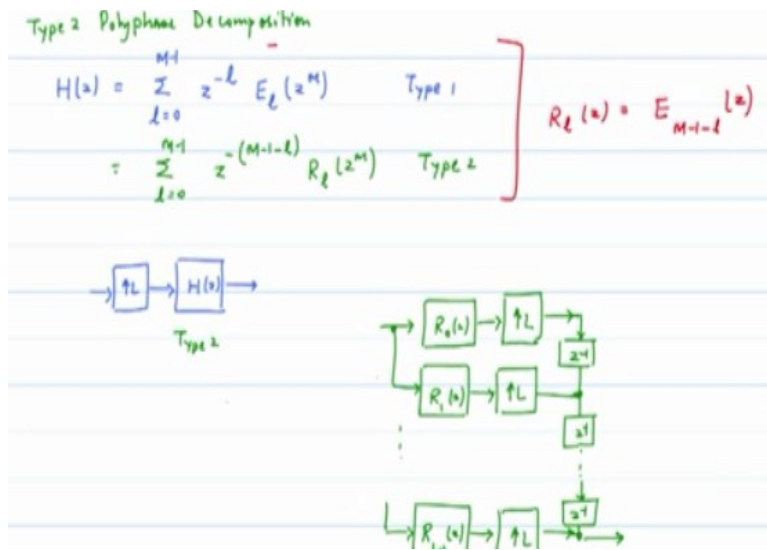 Type 2 Polyphase Decomposition
H(z) = Σ_{l=0}^{M-1} z^{-l} E_l(z^M) Type 1
= Σ_{l=0}^{M-1} z^{-(M-1-l)} R_l(z^M) Type 2
R_l(z) = E_{M-1-l}(z)
↑L H(z)
Type 2
R_0(z) ↑L
z^{-1}
R_1(z) ↑L
z^{-1}
z^{-1}
↑L